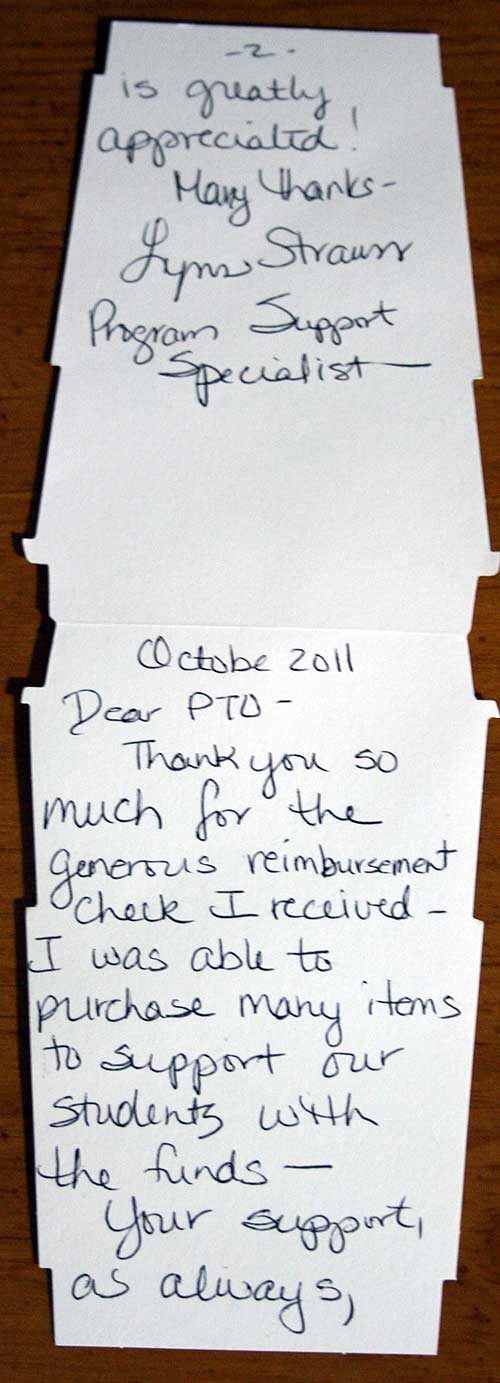 Octobe 2011
Dear PTO -
Thank you so
much for the
generous reimbursement
check I received -
I was able to
purchase many items
to support our
students with
the funds —
Your support,
as always,
- 2 -
is greatly
appreciated!
Many thanks -
Lynn Strauss
Program Support
Specialist —